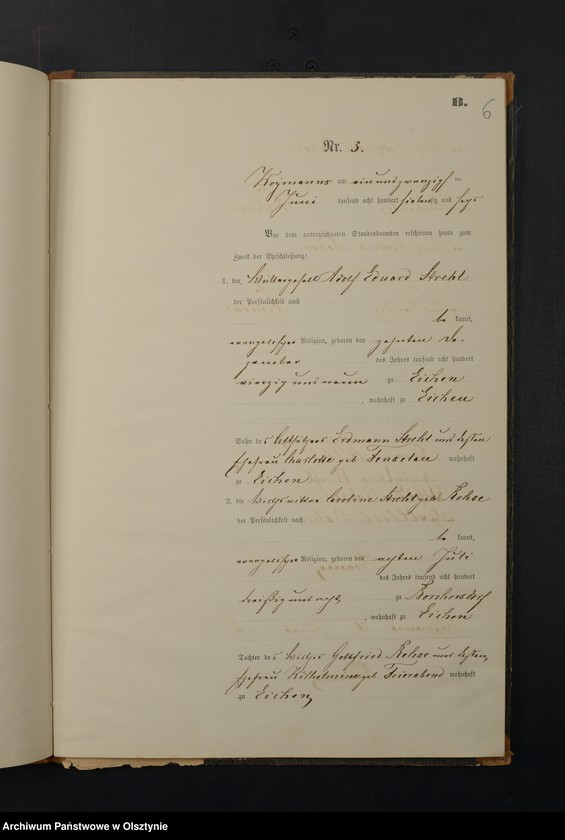 B.
6
Nr. 3.
am einundzwanzigsten
Juni tausend acht hundert siebenzig und sechs
Vor dem unterzeichneten Standesbeamten erschienen heute zum
Zweck der Eheschließung:
1. der Adolf Eduard Strehl
der Persönlichkeit nach
be kannt,
evangelischer Religion, geboren den zehnten De-
zember des Jahres tausend acht hundert
vierzig und neun zu Eichen
, wohnhaft zu Eichen
Sohn des Altsitzers Erdmann Strehl und dessen
Ehefrau Charlotte geb. wohnhaft
zu Eichen
2. die Caroline Strehl geb. Rehse
der Persönlichkeit nach
be kannt,
evangelischer Religion, geboren den achten Juli
des Jahres tausend acht hundert
dreißig und acht zu
, wohnhaft zu Eichen
Tochter des Wirths Gottfried Rehse und dessen
Ehefrau Wilhelmine geb. Feierabend wohnhaft
zu Eichen
Archiwum Państwowe w Olsztynie